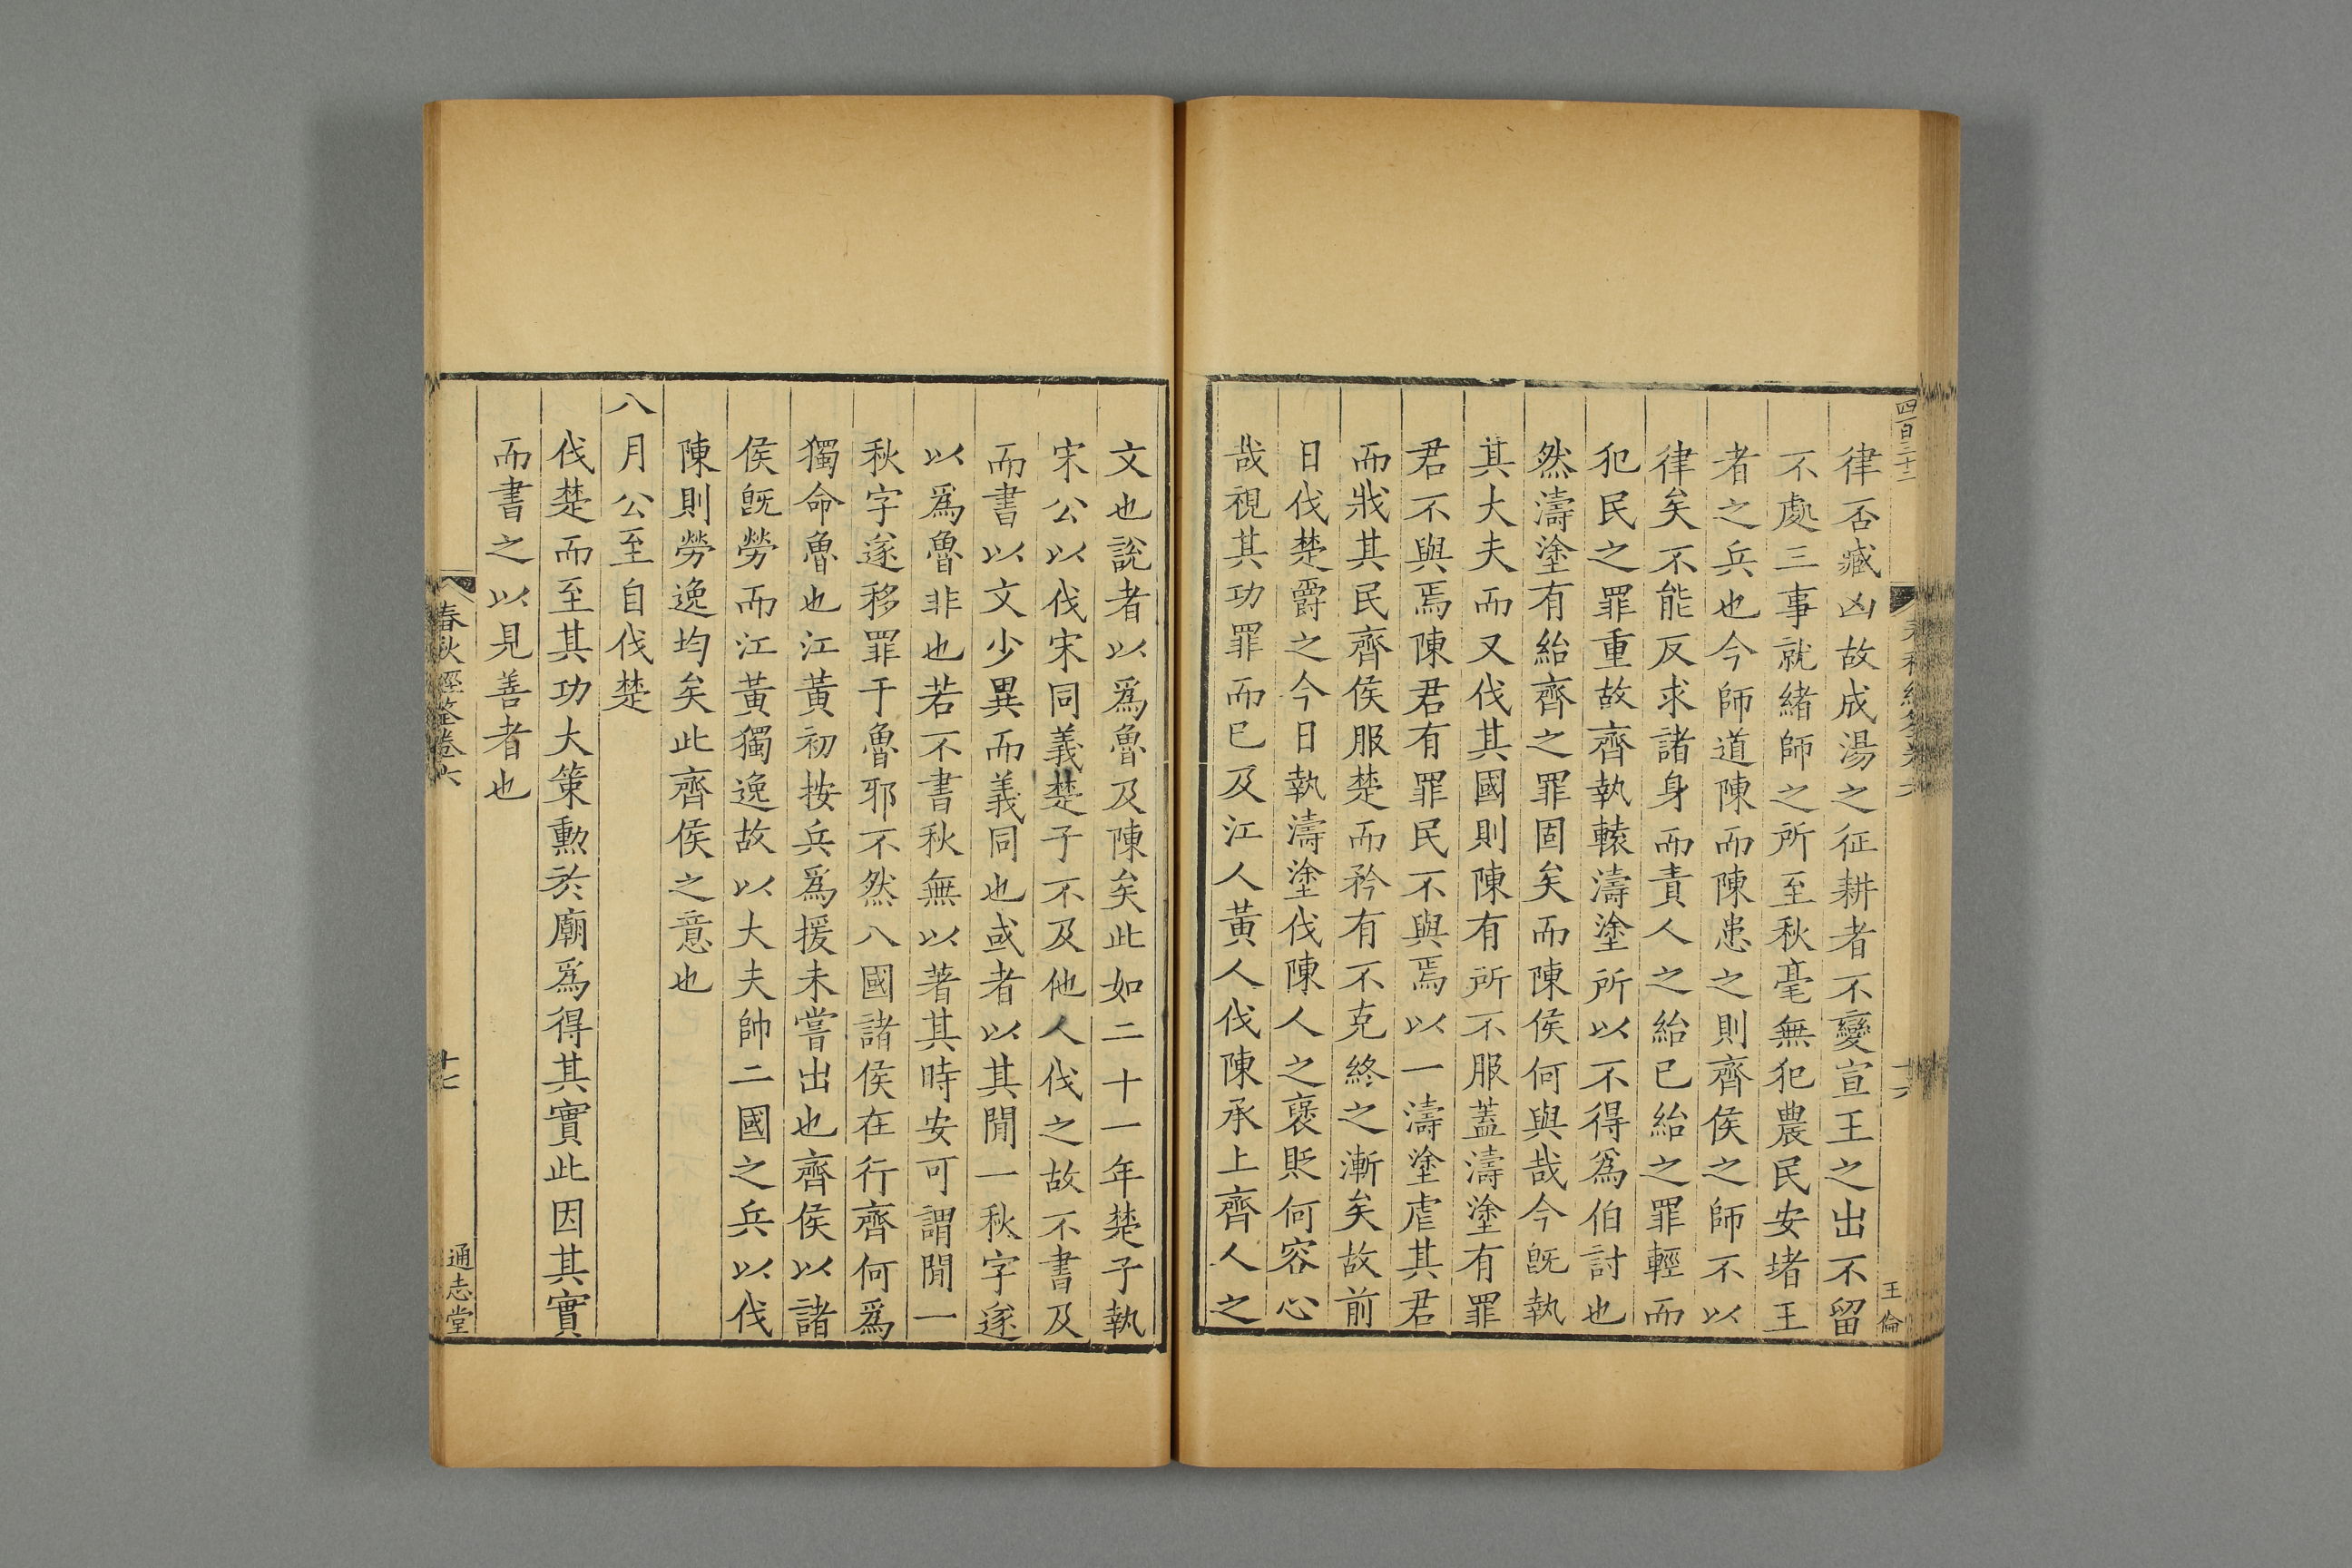 四百三十二
王倫
律否臧凶故成湯之征耕者不變宣王之出不留
不處三事就緒師之所至秋毫無犯農民安堵王
者之兵也今師道陳而陳患之則齊侯之師不以
律矣不能反求諸身而責人之紿已紿之罪輕而
犯民之罪重故齊執轅濤塗所以不得爲伯討也
然濤塗有紿齊之罪固矣而陳侯何與哉今旣執
其大夫而又伐其國則陳有所不服蓋濤塗有罪
君不與焉陳君有罪民不與焉以一濤塗虐其君
而戕其民齊侯服楚而矜有不克終之漸矣故前
日伐楚爵之今日執濤塗伐陳人之褒貶何容心
哉視其功罪而已及江人黃人伐陳承上齊人之
文也說者以爲魯及陳矣此如二十一年楚子執
宋公以伐宋同義楚子不及他人伐之故不書及
而書以文少異而義同也或者以其閒一秋字遂
以爲魯非也若不書秋無以著其時安可謂閒一
秋字遂移罪于魯耶不然八國諸侯在行齊何爲
獨命魯也江黃初按兵爲援未嘗出也齊侯以諸
侯旣勞而江黃獨逸故以大夫帥二國之兵以伐
陳則勞逸均矣此齊侯之意也
八月公至自伐楚
伐楚而至其功大策勲於廟爲得其實此因其實
而書之以見善者也
春秋經筌卷六
十七
通志堂